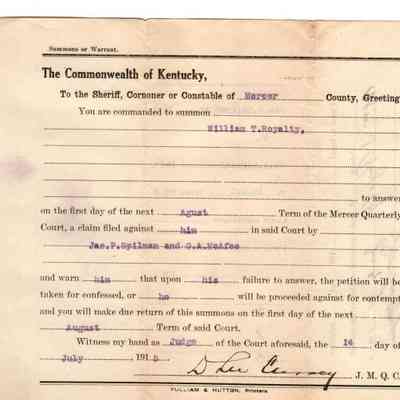 Summons or Warrant.
The Commonwealth of Kentucky,
To the Sheriff, Cornoner or Constable of Mercer County, Greeting
You are commanded to summon
William T.Royalty,
to answer
on the first day of the next Agust Term of the Mercer Quarterly
Court, a claim filed against him in said Court by
Jas.P.Spilman and G.A.McAfee
and warn him that upon his failure to answer, the petition will be
taken for confessed, or he will be proceeded against for contempt
and you will make due return of this summons on the first day of the next
August Term of said Court.
Witness my hand as Judge of the Court aforesaid, the 14 day of
July 1915
J. M. Q. C.
PULLIAM & HUTTON, Printers